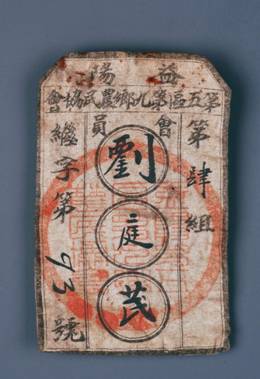 益陽
第五區第九鄉農民協會
第肆組
會員
劉庭茂
繼字第93號